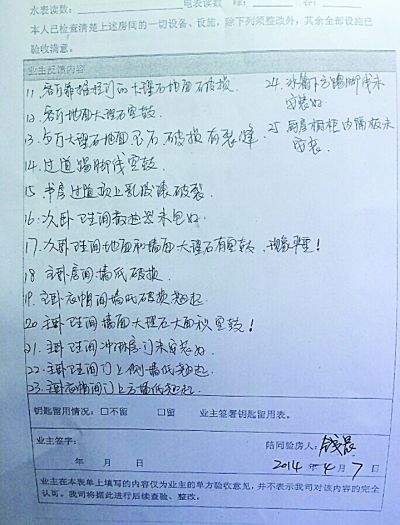 水表读数：
电表读数 峰： 谷：
本人已检查清楚上述房间的一切设备、设施，除下列须整改外，其余全部设施已
验收满意。
业主反馈内容
11. 客厅靠推拉门的大理石地面破损.
12. 客厅地面大理石空鼓.
13. 客厅大理石地面 破损有裂缝.
14. 过道踢脚线空鼓.
15. 书房过道顶上乳胶漆破裂.
16. 次卧卫生间散热器未包好.
17. 次卧卫生间地面和墙面大理石有空鼓 现象严重！
18 主卧房间墙纸破损.
19. 主卧衣帽间墙纸破损翘起.
20. 主卧卫生间墙面大理石大面积空鼓！
21. 主卧卫生间冲淋房门未安装好.
22. 主卧卫生间门上侧墙纸翘起.
23. 主卧衣帽间门上方墙纸翘起.
24. 冰箱下方踢脚线未
安装好
25 厨房橱柜内隔板未
安装.
钥匙留用情况：□不留 □留 业主签署钥匙留用表。
业主签字：
陪同验房人：
2014 年 4 月 7 日
业主在本表单上填写的内容仅为业主的单方验收意见，并不表示我司对该内容的完全
认可。我司将据此进行后续查验、整改。